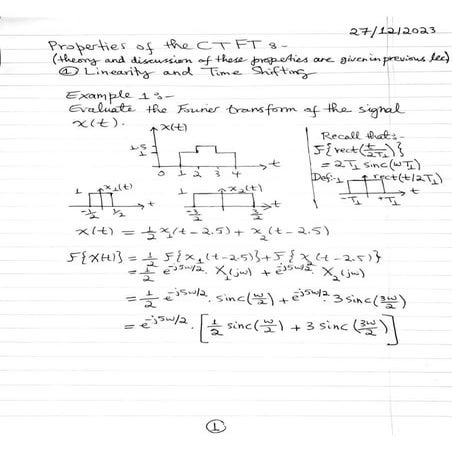 27/12/2023
Properties of the CTFT :-
(theory and discussion of these properties are given in previous lec)
① Linearity and Time Shifting
Example 1 :-
Evaluate the Fourier transform of the signal
x(t).
x(t)
1.5
1
0 1 2 3 4 t
Recall that :-
F{rect(t/2T₁)}
= 2T₁ sinc(ωT₁)
Def:- 1 rect(t/2T₁)
-T₁ +T₁ t
1 x₁(t)
-1/2 1/2 t
1 x₂(t)
-3/2 3/2 t
x(t) = 1/2 x₁(t-2.5) + x₂(t-2.5)
F{x(t)} = 1/2 F{x₁(t-2.5)} + F{x₂(t-2.5)}
= 1/2 e^-j5ω/2 . X₁(jω) + e^-j5ω/2 . X₂(jω)
= 1/2 e^-j5ω/2 . sinc(ω/2) + e^-j5ω/2 3 sinc(3ω/2)
= e^-j5ω/2 . [1/2 sinc(ω/2) + 3 sinc(3ω/2)]
①